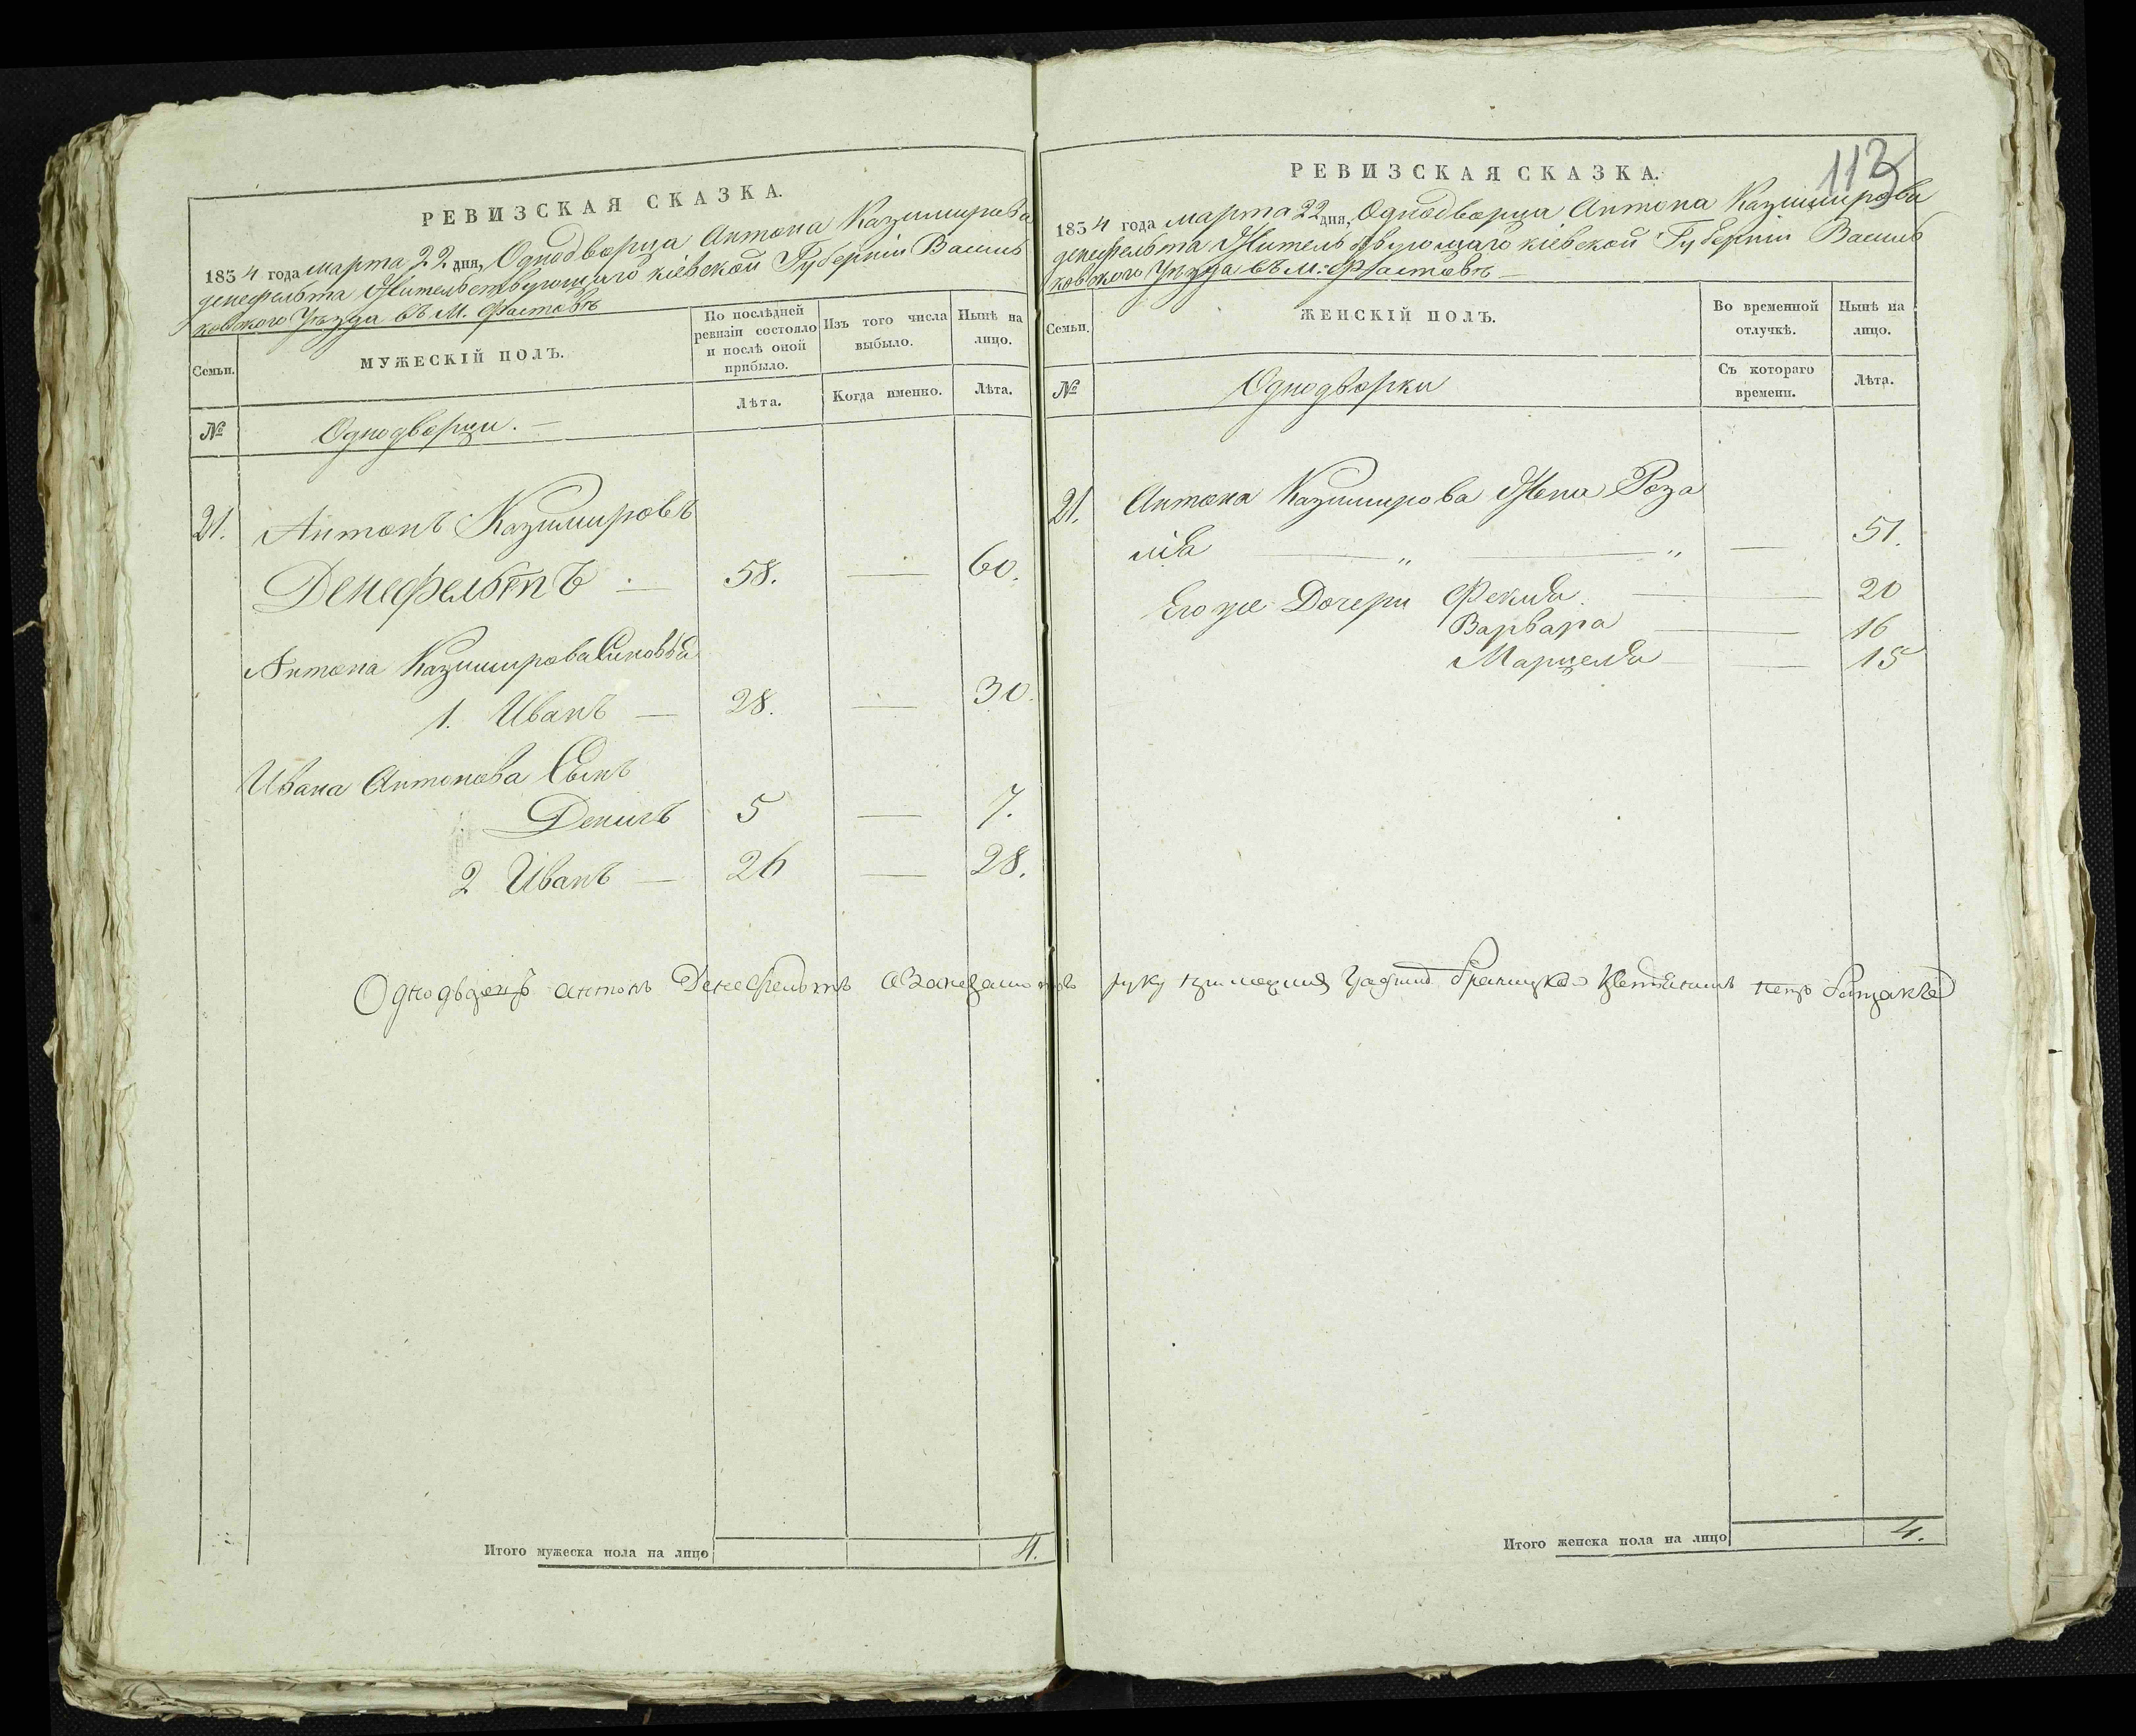 РЕВИЗСКАЯ СКАЗКА.
1854 года марта 22 дня, Однодворца Антона Казимирова
денефельта Жительствующаго кіевской Губерніи Василь
ковского Уезда въ м. Фастовѣ
Семьи.
МУЖЕСКІЙ ПОЛЪ.
По послѣдней ревизіи состояло и послѣ оной прибыло.
Изъ того числа выбыло.
Нынѣ на лицо.
№
Однодворцы.
Лѣта.
Когда именно.
Лѣта.
21. Антонъ Казимировъ
Денефельтъ — 58. — 60.
Антона Казимирова Сыновья
1. Иванъ — 28. — 30.
Ивана Антонова Сынъ
Денисъ 5 — 7.
2 Иванъ — 26 — 28.
Итого мужеска пола на лицо 4.
113
РЕВИЗСКАЯ СКАЗКА.
1854 года марта 22 дня, Однодворца Антона Казимирова
денефельта Жительствующаго кіевской Губерніи Василь
ковского Уезда въ м: Фастовѣ —
Семьи.
ЖЕНСКІЙ ПОЛЪ.
Во временной отлучкѣ.
Нынѣ на лицо.
№
Однодворки
Съ котораго времени.
Лѣта.
21. Антона Казимирова Жена Роза
лія — „ — „ — 51.
Его же Дочери Фекла — 20
Варвара — 16
Марцеля — 15
Однодворецъ антонъ Денефельтъ руку
Итого женска пола на лицо 4.